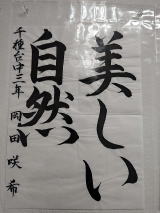 美しい
自然
千種台中三年 岡田咲希